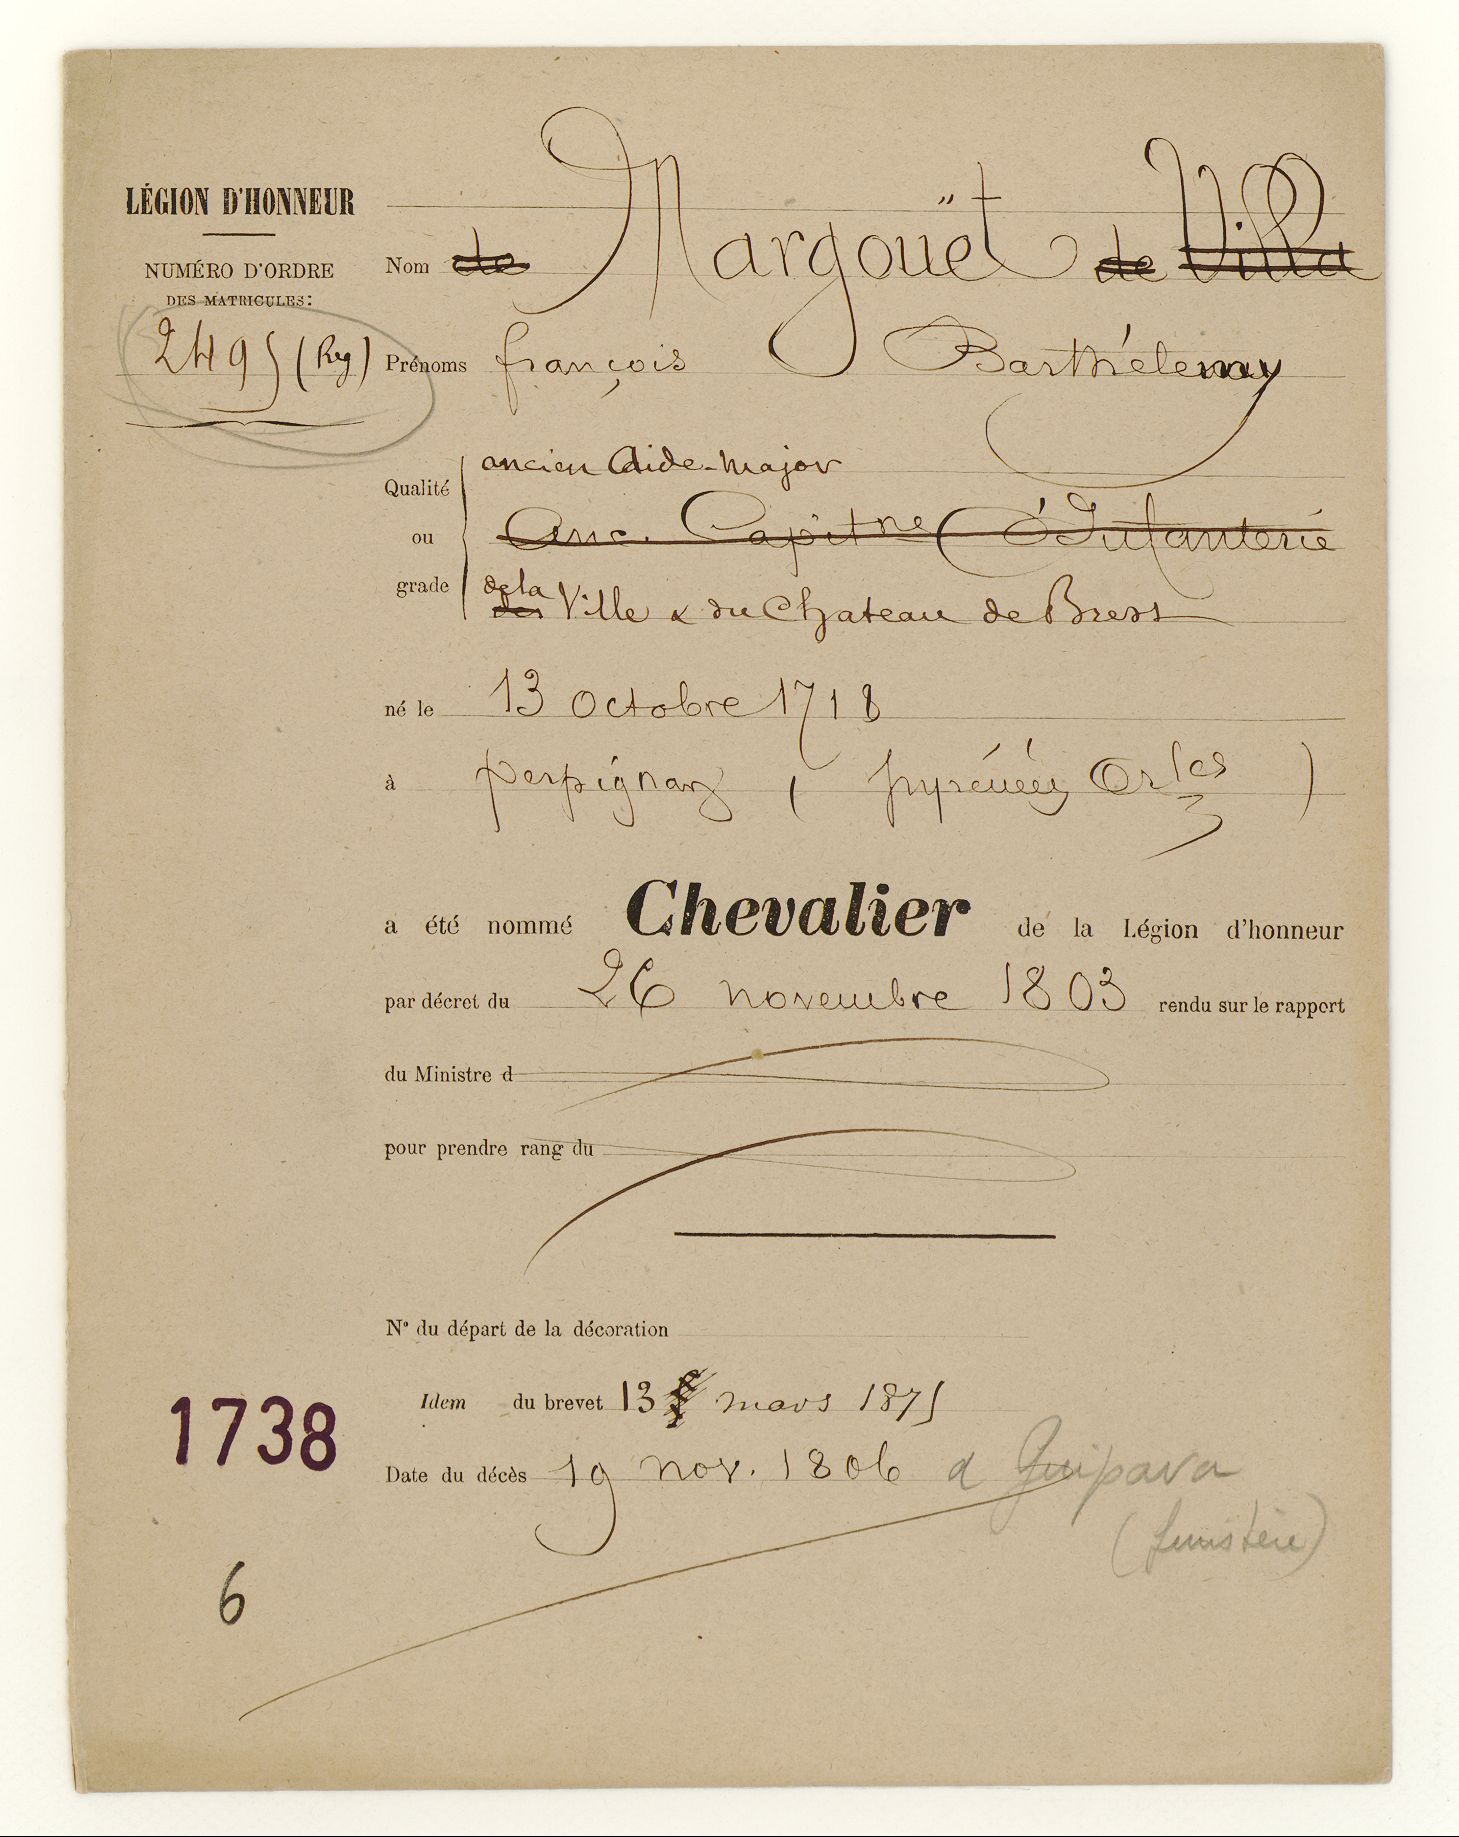 LÉGION D'HONNEUR
NUMÉRO D'ORDRE
DES MATRICULES:
2495 (Reg)
Nom de Margouët de Villa
Prénoms françois Barthélemy
Qualité ou grade
ancien Aide-Major
Anc. Capitne d'Infanterie
de la
des Ville & du Chateau de Brest
né le 13 octobre 1718
à perpignan ( pyrénées Orles )
a été nommé Chevalier de la Légion d'honneur
par décret du 26 novembre 1803 rendu sur le rapport
du Ministre d
pour prendre rang du
N° du départ de la décoration
Idem du brevet 13 mars 1875
Date du décès 19 nov. 1806 a Guipava
(finistère)
1738
6